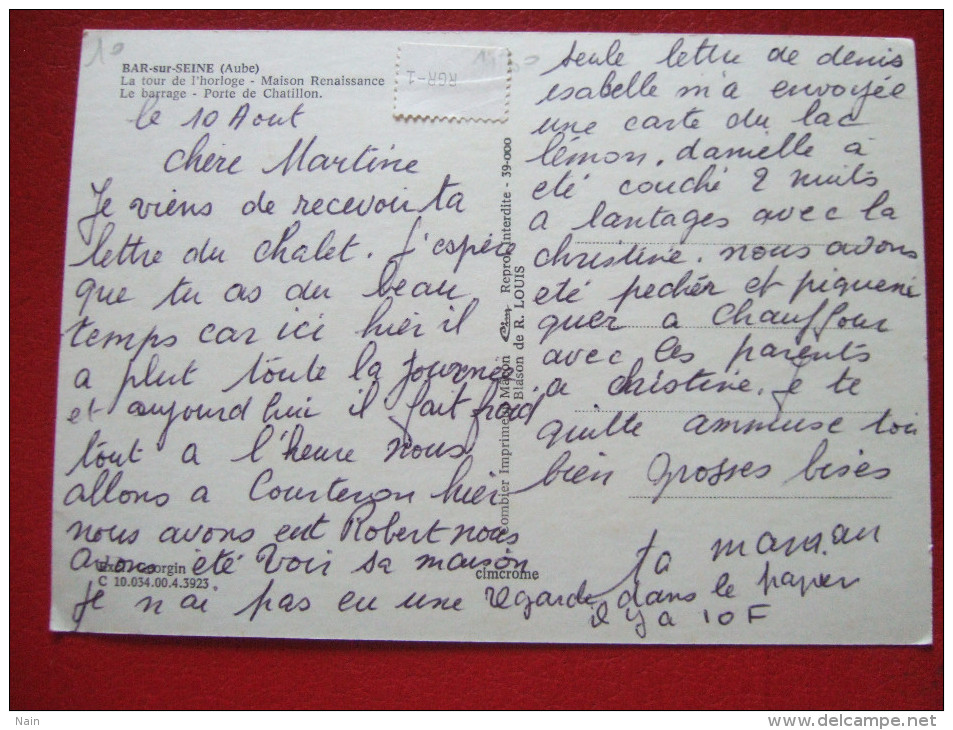 BAR-sur-SEINE (Aube)
La tour de l'horloge - Maison Renaissance
Le barrage - Porte de Chatillon.
le 10 Aout
chère Martine
Je viens de recevoir ta
lettre du chalet. J'espère
que tu as du beau
temps car ici hier il
a plut toute la journée
et aujourd hui il fait froid
tout a l'heure nous
allons a Courteron hier
nous avons eut Robert nous
avons été voir sa maison
Je n'ai pas eu une
seule lettre de denis
isabelle m'a envoyée
une carte du lac
lémon. danielle à
été couché 2 nuits
a lantages avec la
christine. nous avons
été pechér et piqueni
quer a Chauffour
avec les parents
a christine. Je te
quitte ammuse toi
bien grosses bises
ta maman
regarde dans le papier
il y a 10 F
RGR-1
Combier Imprimeur Mâcon Cim Reprod. interdite - 39-000
Blason de R. LOUIS
Georgin
C 10.034.00.4.3923
cimcrome
Nain
http://www.delcampe.net